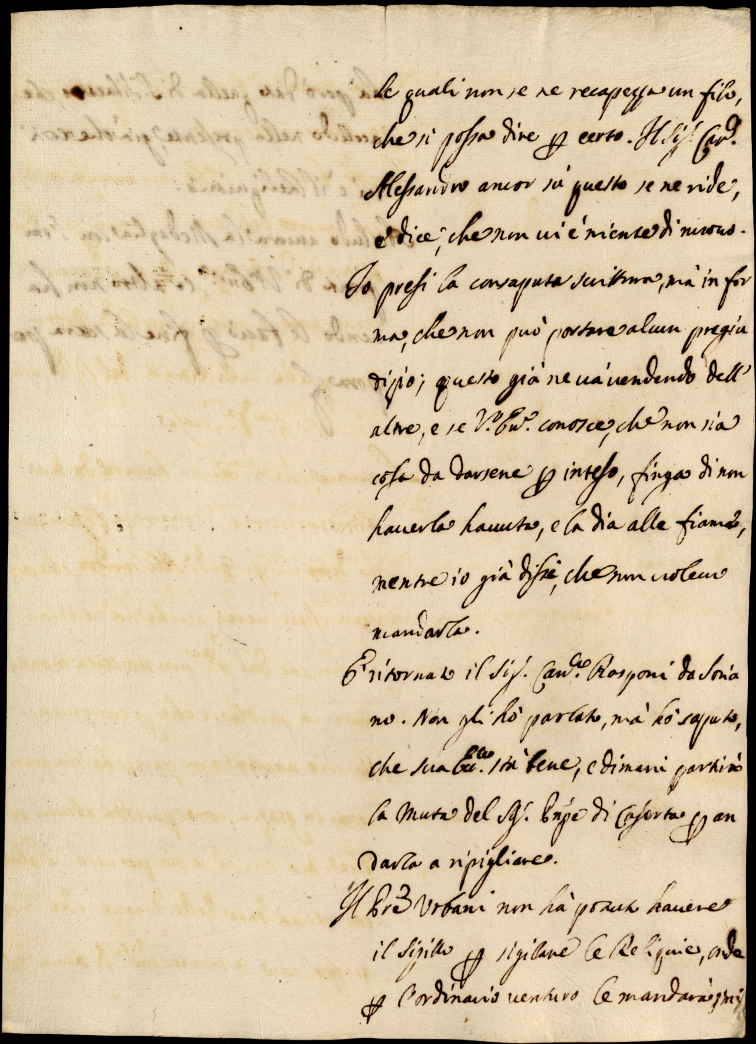 le quali non se ne recapezza un filo,
che si possa dire ꝑ certo. Il Sig.r Card.
Alessandro ancor sù questo se ne ride,
e dice, che non ui è niente di nuouo.
Io presi la consaputa scrittura, mà in for
ma, che non può portare alcun pregiu
dizio; questo già ne uà uendendo dell'
altre, e se V. Em. conosce, che non sia
cosa da darsene ꝑ inteso, finga di non
hauerla hauuta, e la dia alle fiame,
mentre io già dissi, che non uoleuo
mandarla.
È ritornato il Sig. Card.le Rasponi da Soria
no. Non gli hò parlato, mà hò saputo,
che sua stà bene, e dimani partirà
la Muta del Sig. Pnpe di Caserta ꝑ an
darla a ripigliare.
Il Pre Vrbani non hà potuto hauere
il sigillo ꝑ sigillare le Reliquie, onde
ꝑ l'ordinario uenturo le mandarà,